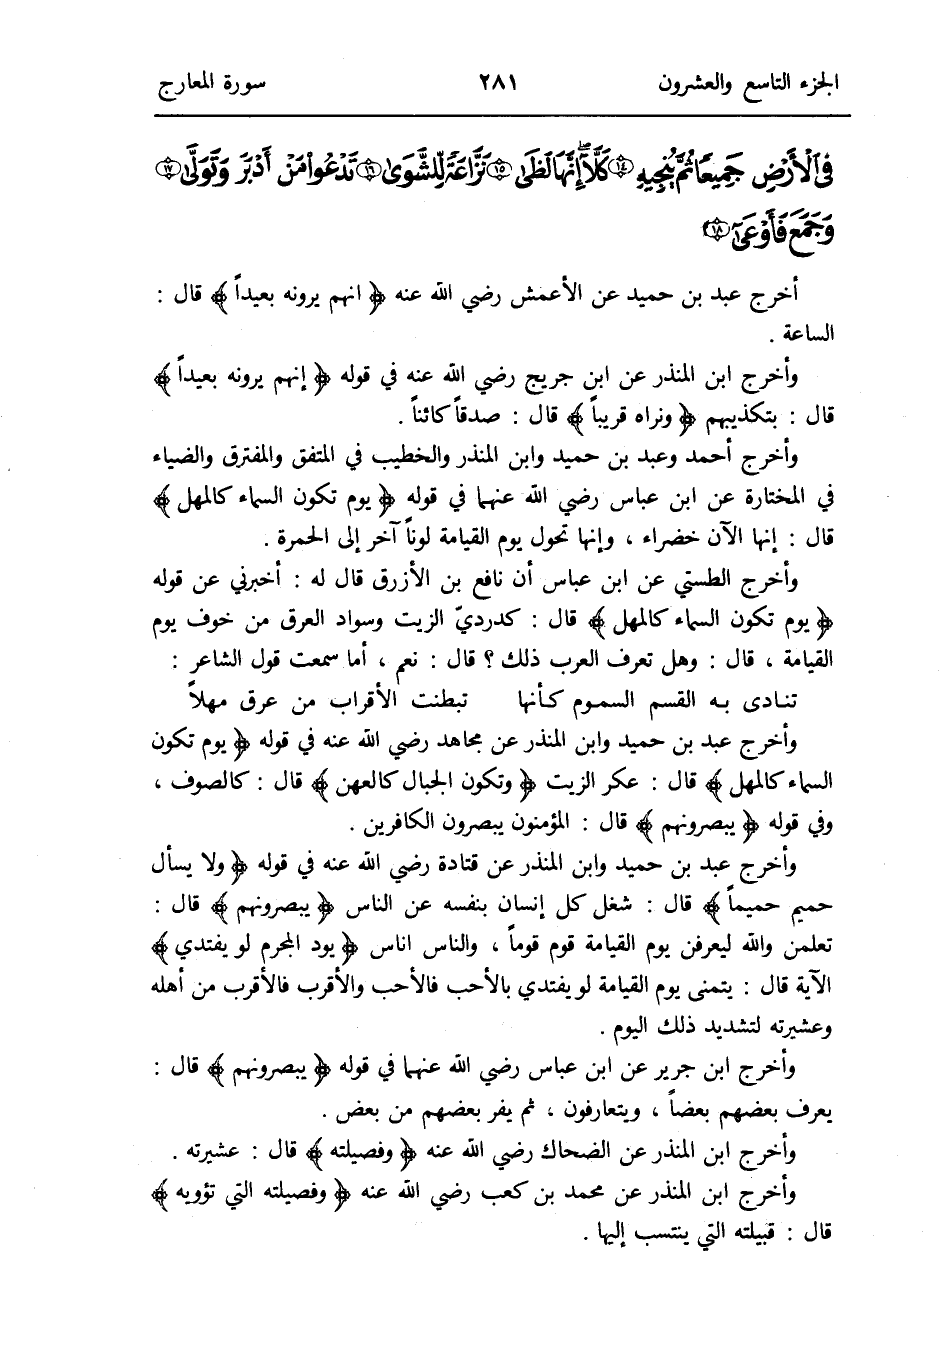 الجزء التاسع والعشرون ٢٨١ سورة المعارج
فِي ٱلْأَرْضِ جَمِيعًا ثُمَّ يُنجِيهِ ١٤ كَلَّآ إِنَّهَا لَظَىٰ ١٥ نَزَّاعَةً لِّلشَّوَىٰ ١٦ تَدْعُوا۟ مَنْ أَدْبَرَ وَتَوَلَّىٰ ١٧
وَجَمَعَ فَأَوْعَىٰٓ ١٨
أخرج عبد بن حميد عن الأعمش رضي الله عنه ﴿ انهم يرونه بعيداً ﴾ قال :
الساعة .
وأخرج ابن المنذر عن ابن جريج رضي الله عنه في قوله ﴿ إنهم يرونه بعيداً ﴾
قال : بتكذيبهم ﴿ ونراه قريباً ﴾ قال : صدقاً كائناً .
وأخرج أحمد وعبد بن حميد وابن المنذر والخطيب في المتفق والمفترق والضياء
في المختارة عن ابن عباس رضي الله عنهما في قوله ﴿ يوم تكون السماء كالمهل ﴾
قال : إنها الآن خضراء ، وإنها تحول يوم القيامة لوناً آخر إلى الحمرة .
وأخرج الطستي عن ابن عباس أن نافع بن الأزرق قال له : أخبرني عن قوله
﴿ يوم تكون السماء كالمهل ﴾ قال : كدرديّ الزيت وسواد العرق من خوف يوم
القيامة ، قال : وهل تعرف العرب ذلك ؟ قال : نعم ، أما سمعت قول الشاعر :
تنادى به القسم السموم كأنها تبطنت الأقراب من عرق مهلاً
وأخرج عبد بن حميد وابن المنذر عن مجاهد رضي الله عنه في قوله ﴿ يوم تكون
السماء كالمهل ﴾ قال : عكر الزيت ﴿ وتكون الجبال كالعهن ﴾ قال : كالصوف ،
وفي قوله ﴿ يبصرونهم ﴾ قال : المؤمنون يبصرون الكافرين .
وأخرج عبد بن حميد وابن المنذر عن قتادة رضي الله عنه في قوله ﴿ ولا يسأل
حميم حميماً ﴾ قال : شغل كل إنسان بنفسه عن الناس ﴿ يبصرونهم ﴾ قال :
تعلمن والله ليعرفن يوم القيامة قوم قوماً ، والناس اناس ﴿ يود المجرم لو يفتدي ﴾
الآية قال : يتمنى يوم القيامة لو يفتدي بالأحب فالأحب والأقرب فالأقرب من أهله
وعشيرته لتشديد ذلك اليوم .
وأخرج ابن جرير عن ابن عباس رضي الله عنهما في قوله ﴿ يبصرونهم ﴾ قال :
يعرف بعضهم بعضاً ، ويتعارفون ، ثم يفر بعضهم من بعض .
وأخرج ابن المنذر عن الضحاك رضي الله عنه ﴿ وفصيلته ﴾ قال : عشيرته .
وأخرج ابن المنذر عن محمد بن كعب رضي الله عنه ﴿ وفصيلته التي تؤويه ﴾
قال : قبيلته التي ينتسب إليها .